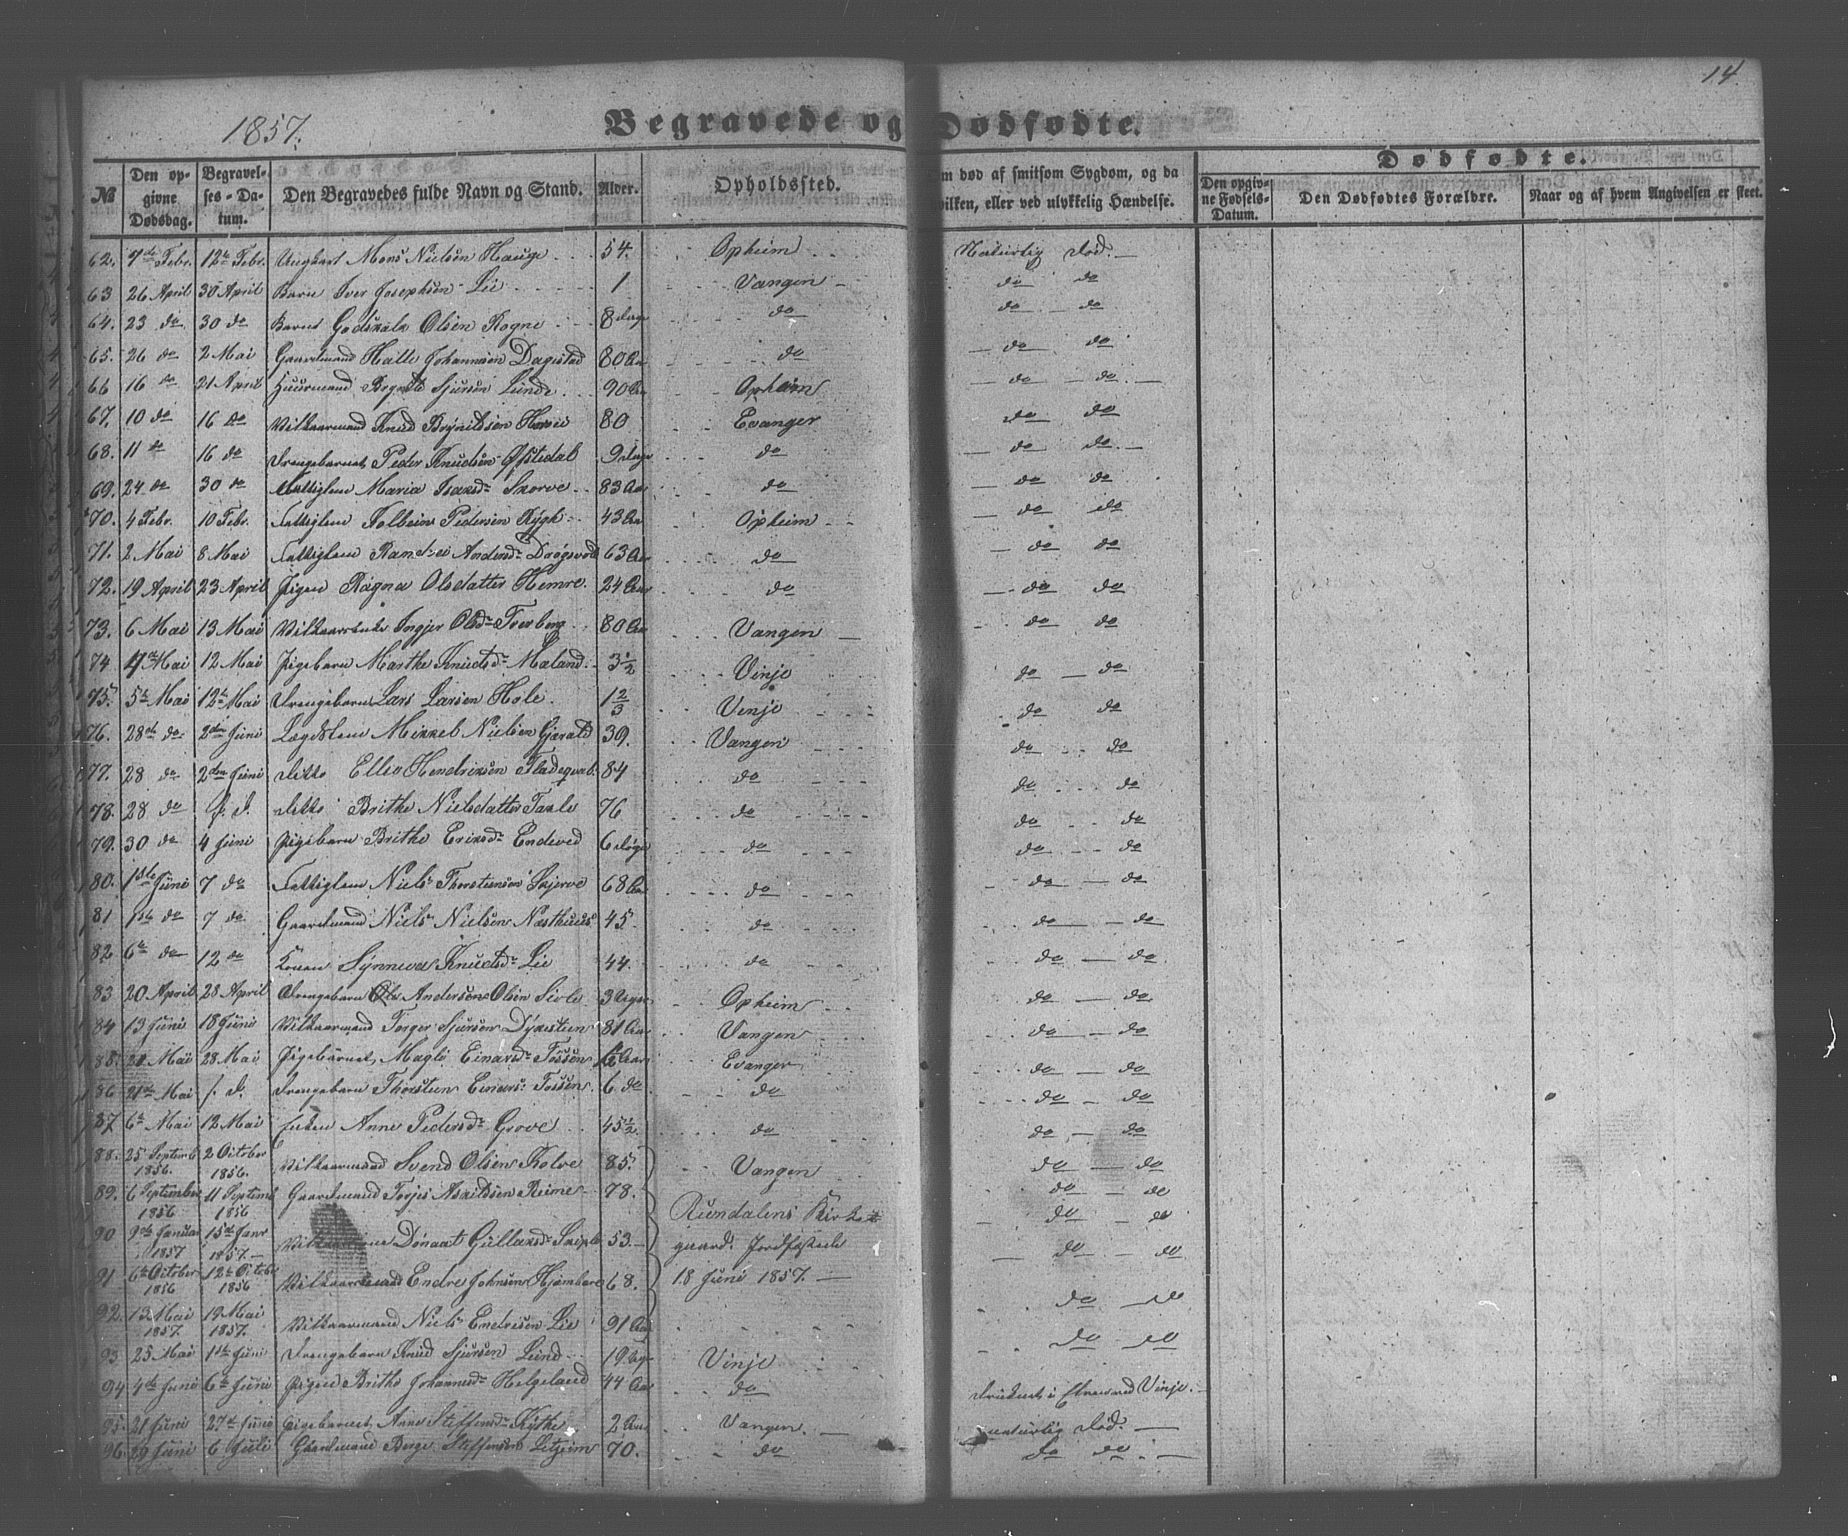 14
1857.
Begravede og Dødfødte.
Dødfødte.
№ Den opgivne Dødsdag. Begravelses-Datum. Den Begravedes fulde Navn og Stand. Alder. Opholdssted. Om død af smitsom Sygdom, og da hvilken, eller ved ulykkelig Hændelse. Den opgivne Fødsels-Datum. Den Dødfødtes Forældre. Naar og af hvem Angivelsen er skeet.
62. 7de Febr. 12te Febr. Ungkarl Mons Nielsen Hauge 54. Opheim Naturlig Død.
63 26 April 30 April Barn Iver Josephsen Lie 1 Vangen do do
64. 23 do 30 do Barnet Godskalk Olsen Rogne 8 Dage do do do
65. 26 do 2 Mai Gaardmand Halle Johannesen Dagestad 80 Aar do do do
66 16 do 21 April Huusmand Brynild Sjursen Lunde 90 Aar Opheim do do
67. 10 do 16 do Vilkaarmand Knud Brynildsen 80 Evanger do do
68. 11 do 16 do Drengebarnet Peder Knudsen 9 Dage do do do
69. 24 do 30 do Fattiglem Maria Isaksdr Skorve 83 Aar do do do
70. 4 Febr. 10 Febr. Fattiglem Kolbein Pedersen Rygh 43 Aar Opheim do do
71. 2 Mai 8 Mai Fattiglem Randvei Andersdr 63 Aar do do do
72. 19 April 23 April Pigen Ragna Olsdatter Hemre 24 Aar do do do
73. 6 Mai 13 Mai Vilkaarsenke Ingjer Olsdr Tverberg 80 Aar Vangen do do
74 7de Mai 12 Mai Pigebarn Marthe Knudsdr Mæland 3½ Vinje do do
75. 5te Mai 12te Mai Drengebarn Lars Larsen Hole 1⅔ Vinje do do
76. 28de do 2den Juni Lægdslem Mikkel Nielsen Gjerald 39. Vangen do do
77. 28 do 2den Juni Ditto Ellev Hendriksen 84 do do do
78. 28 do f. D. Ditto Brithe Nielsdatter 76 do do do
79. 30 do 4 Juni Pigebarn Brithe Eriksdr Endeved 6 Døgn do do do
80. 1ste Juni 7 do Fattiglem Niels Thorsteinsen Skjerve 68 Aar do do do
81 1ste do 7 do Gaardmand Niels Nielsen Næsthuus 45 do do do
82 6te do 12 do Konen Synneva Knudsdr Lie 44. do do do
83 20 April 28 April Drengebarn Ole Andersen Olsen Sivle 3 Uger Opheim do do
84 13 Juni 18 Juni Vilkaarmand Torger Sjursen Dykesteen 81 Aar Vangen do do
85. 21 Mai 28 Mai Pigebarnet Magli Einarsd Fossen Aar Evanger do do
86 21de Mai f. D. Drengebarn Thorstein Einars. Fossen 6 do do do do
87 6te Mai 12 Mai Enken Anne Pedersdr Grove 45½ do do do
88. 25 Septemb 1856. 2 October 1856. Vilkaarmand Svend Olsen Kolve 85. Vangen do do
89. 6 September 1856 11 Septemb 1856 Gaardmand Torjes Askildsen Reime 78. do do
90 9de Januar 1857 15de Janr 1857. Dønaat Gullaksdr 53. Rundalens Kirke- do do
gaard. Jordfæstede
91 6te October 1856 12te Octobr 1856 Vilkaarsmand Endre Johnsen 68. 18 Juni 1857. do do
92. 13 Mai 1857. 19 Mai 1857. Vilkaarmand Niels Endresen Lie 91 Aar do do
93 25 Mai 1ste Juni Drengebarn Knud Sjursen Lund 19 Vinje do do
94 4de Juni 6te Juni Pigen Brithe Johannesdr Helgeland 44 Aar do Druknet i Elven ved Vinje.
95. 21 Juni 27de Juni Pigebarnet Anne Steffensdr Kythe 2 Aar Vangen. naturlig Død.
96. 29 Juni 6 Juli Gaardmand Berge Steffensen 70. do do do